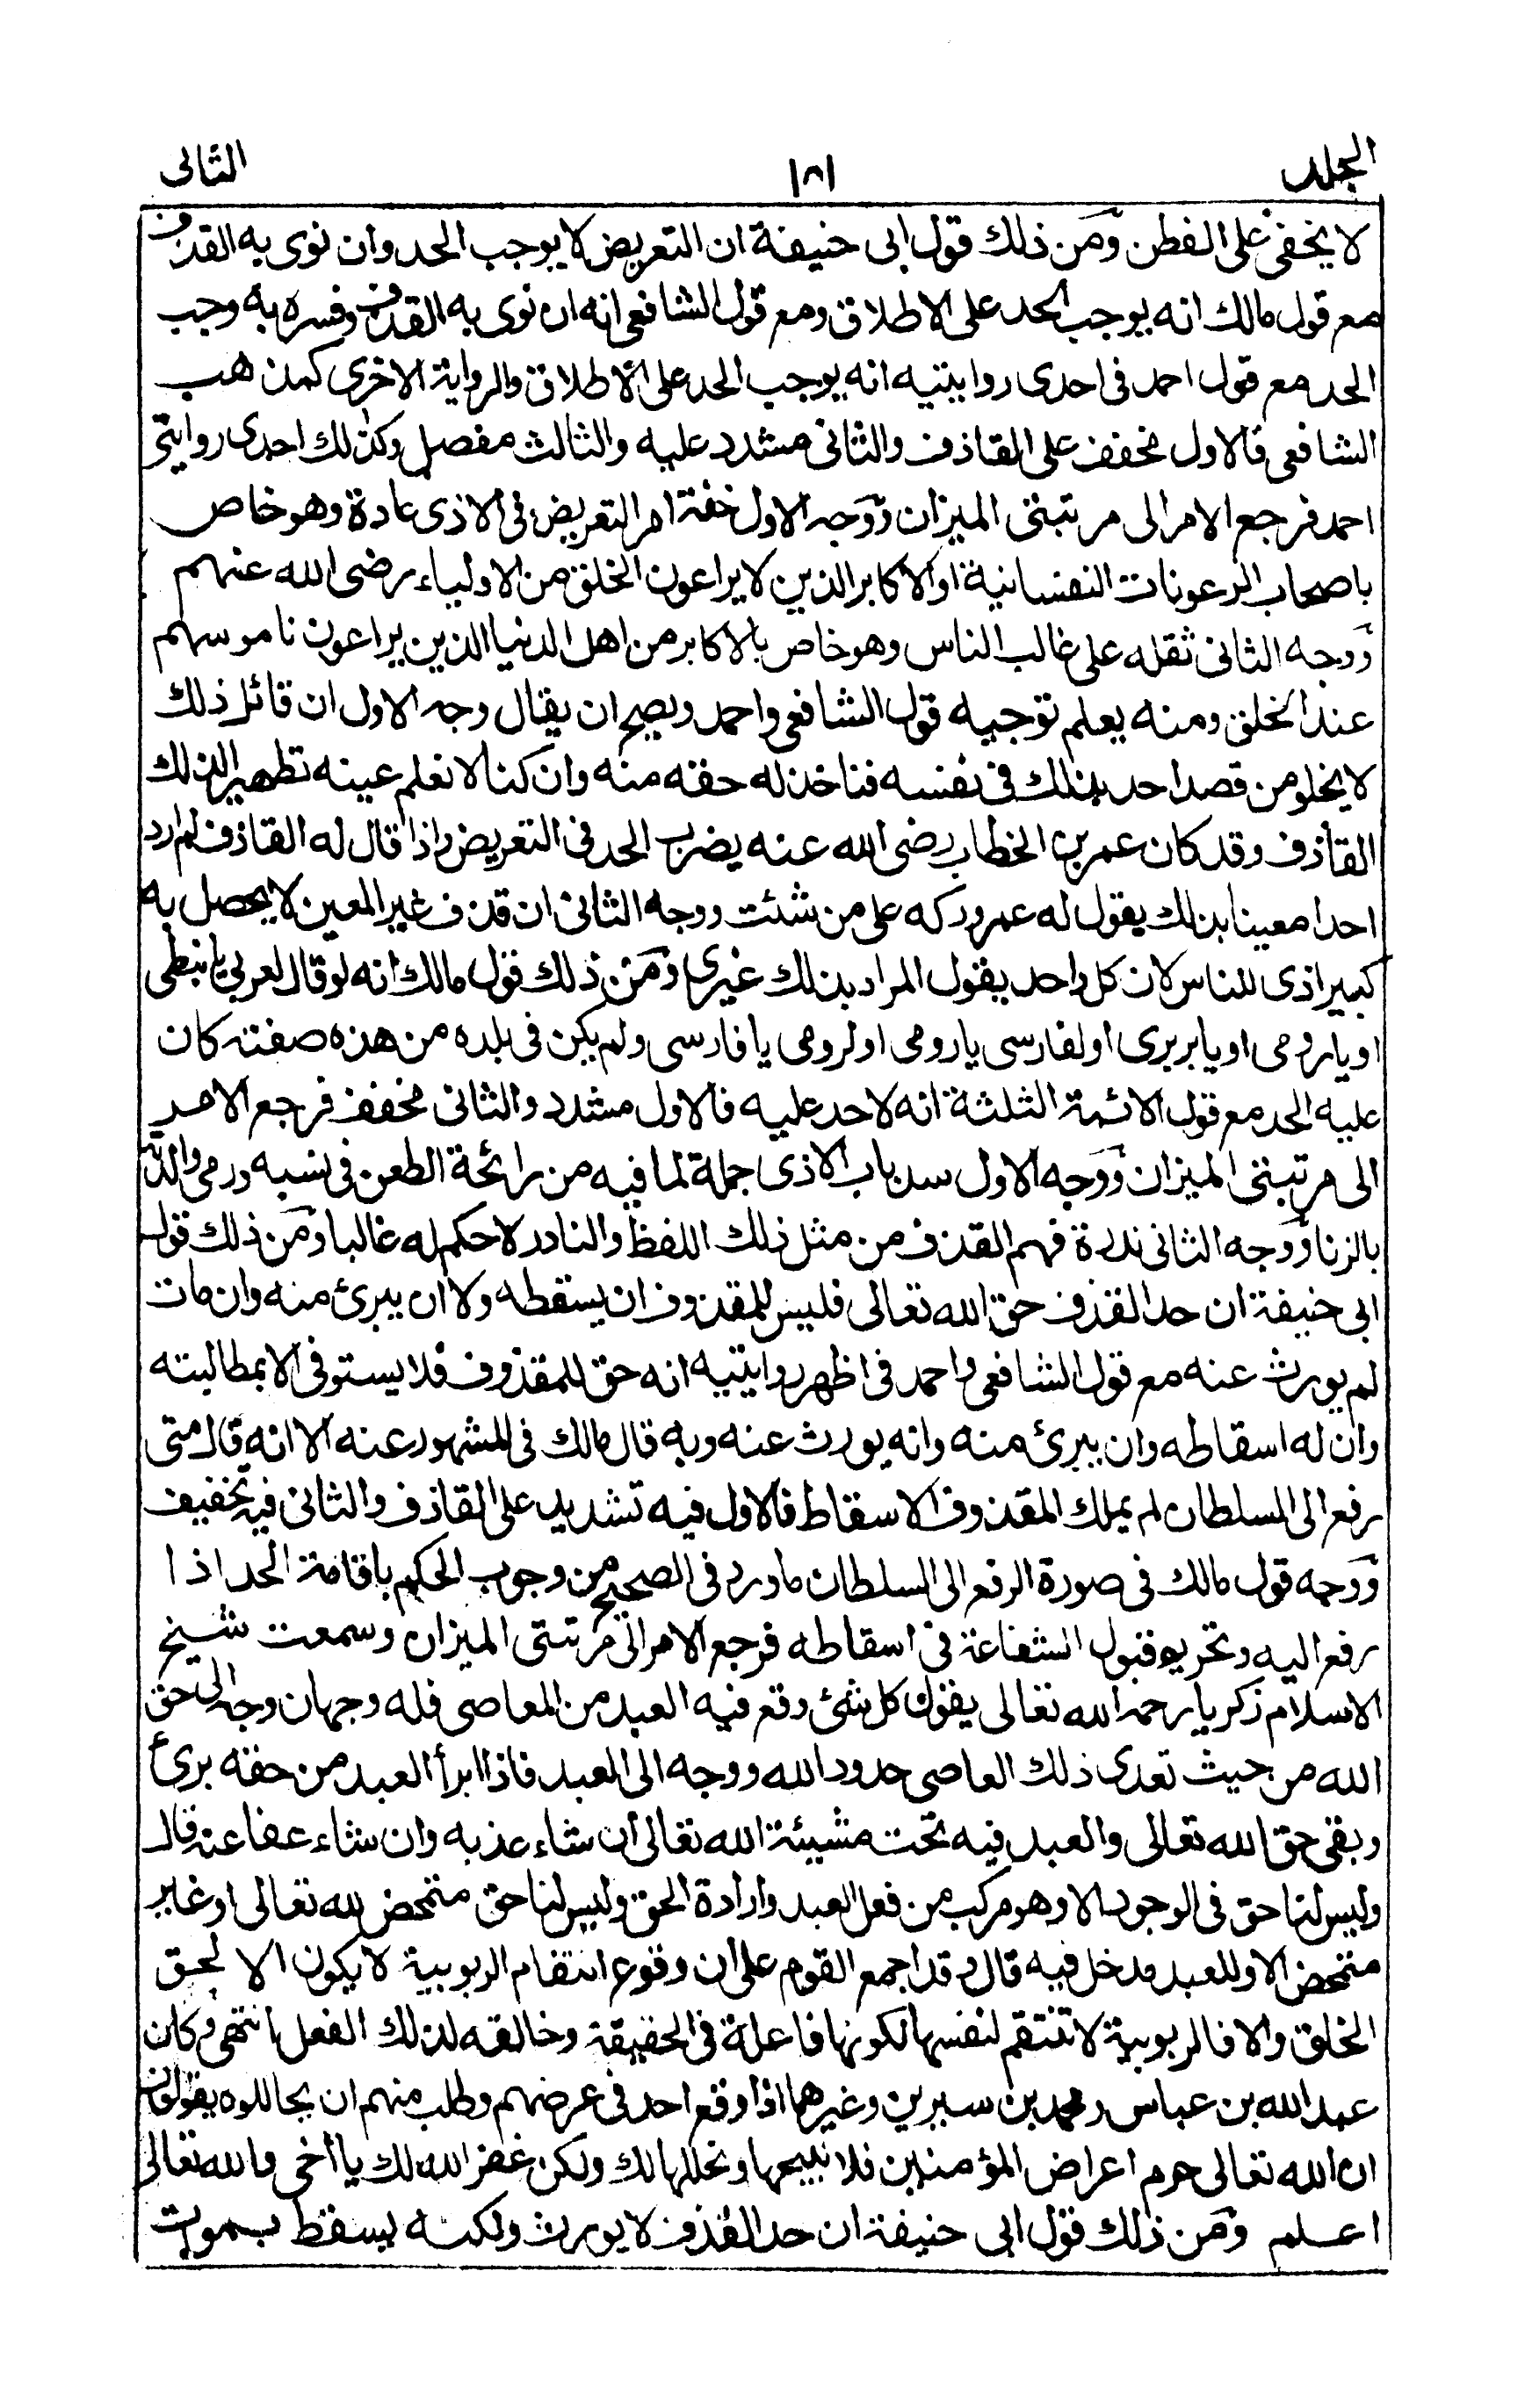 الجلد ١٨١ الثانى
لا يخفى على الفطن ومن ذلك قول ابى حنيفة ان التعريض لا يوجب الحد وان نوى به القذف
مع قول مالك انه يوجب الحد على الاطلاق ومع قول الشافعى انه ان نوى به القذف وفسره به وجب
الحد مع قول احمد فى احدى روايتيه انه يوجب الحد على الاطلاق والرواية الاخرى كمذهب
الشافعى فالاول مخفف على القاذف والثانى مشدد عليه والثالث مفصل وكذلك احدى روايتى
احمد فرجع الامر الى مرتبتى الميزان ووجه الاول خفة امر التعريض فى الاذى عادة وهو خاص
باصحاب الرعونات النفسانية او الاكابر الذين لا يراعون الخلق من الاولياء رضى الله عنهم
ووجه الثانى ثقله على غالب الناس وهو خاص بالاكابر من اهل الدنيا الذين يراعون ناموسهم
عند الخلق ومنه يعلم توجيه قول الشافعى واحمد ويصح ان يقال وجه الاول ان قائل ذلك
لا يخلو من قصد احد بذلك فى نفسه فناخذ له حقه منه وان كنا لا نعلم عينه تطهيرا لذلك
القاذف وقد كان عمر بن الخطاب رضى الله عنه يضرب الحد فى التعريض واذا قال له القاذف لم ارد
احدا معينا بذلك يقول له عمر وركه على من شئت ووجه الثانى ان قذف غير المعين لا يحصل به
كبير اذى للناس لان كل واحد يقول المراد بذلك غيرى ومن ذلك قول مالك انه لو قال لعربى يا نبطى
او يا رومى او يا بربرى او لفارسى يا رومى او لرومى يا فارسى ولم يكن فى بلده من هذه صفته كان
عليه الحد مع قول الائمة الثلثة انه لا حد عليه فالاول مشدد والثانى مخفف فرجع الامر
الى مرتبتى الميزان ووجه الاول سد باب الاذى جملة لما فيه من رائحة الطعن فى نسبه ورمى والدته
بالزنا ووجه الثانى ندرة فهم القذف من مثل ذلك اللفظ والنادر لا حكم له غالبا ومن ذلك قول
ابى حنيفة ان حد القذف حق الله تعالى فليس للمقذوف ان يسقطه ولا ان يبرئ منه وان مات
لم يورث عنه مع قول الشافعى واحمد فى اظهر روايتيه انه حق للمقذوف فلا يستوفى الا بمطالبته
وان له اسقاطه وان يبرئ منه وانه يورث عنه وبه قال مالك فى المشهور عنه الا انه قال متى
رفع الى السلطان لم يملك المقذوف الاسقاط فالاول فيه تشديد على القاذف والثانى فيه تخفيف
ووجه قول مالك فى صورة الرفع الى السلطان ما ورد فى الصحيح من وجوب الحكم باقامة الحد اذا
رفع اليه وتحريم قبول الشفاعة فى اسقاطه فرجع الامر الى مرتبتى الميزان وسمعت شيخ
الاسلام زكريا رحمه الله تعالى يقول كل شئ وقع فيه العبد من المعاصى فله وجهان وجه الى حق
الله من حيث تعدى ذلك العاصى حدود الله ووجه الى العبد فاذا ابرأ العبد من حقه برئ
وبقى حق الله تعالى والعبد فيه تحت مشيئة الله تعالى ان شاء عذبه وان شاء عفا عنه قال
وليس لنا حق فى الوجود الا وهو مركب من فعل العبد وارادة الحق وليس لنا حق متمحض لله تعالى او غير
متمحض الا وللعبد مدخل فيه قال وقد اجمع القوم على ان وقوع انتقام الربوبية لا يكون الا لحق
الخلق والا فالربوبية لا تنتقم لنفسها لكونها فاعلة فى الحقيقة وخالقه لذلك الفعل انتهى وكان
عبد الله بن عباس ومحمد بن سيرين وغيرهما اذا وقع احد فى عرضهم وطلب منهم ان يحاللوه يقولون
ان الله تعالى حرم اعراض المؤمنين فلا نبيحها ونحللها لك ولكن غفر الله لك يا أخى والله تعالى
اعلم ومن ذلك قول ابى حنيفة ان حد القذف لا يورث ولكنه يسقط بموت